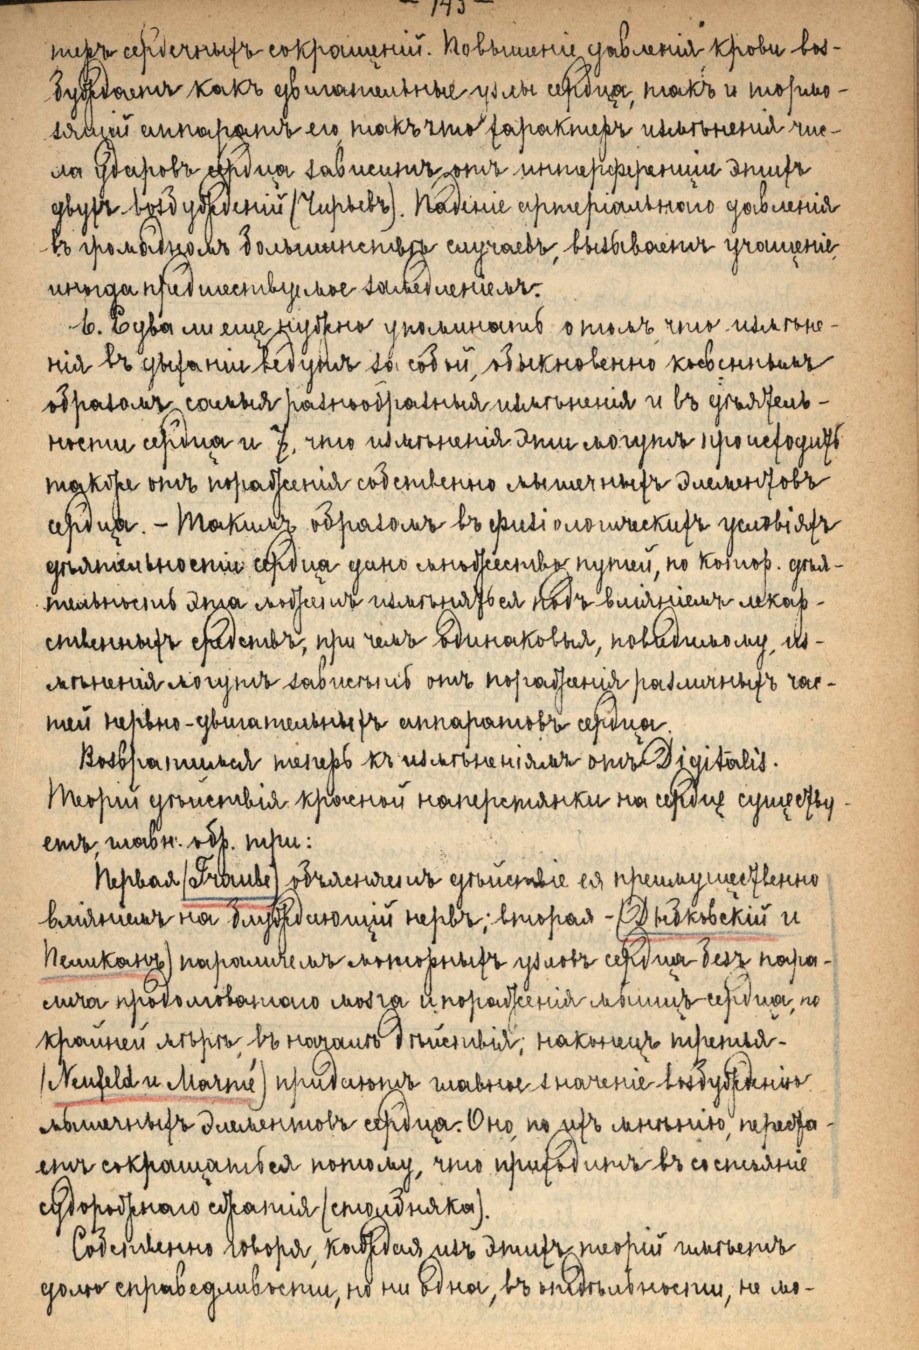 — 143 —
теръ сердечныхъ сокращеній. Повышеніе давленія крови воз-
буждаетъ какъ двигательные узлы сердца, такъ и тормо-
зящій аппаратъ его, такъ что характеръ измѣненія чис-
ла ударовъ сердца зависитъ отъ интерференціи этихъ
двухъ возбужденій (Чирьевъ). Паденіе артеріальнаго давленія
въ громадномъ большинствѣ случаевъ, вызываетъ учащеніе,
иногда предшествуемое замедленіемъ.
6. Едва ли еще нужно упоминать о томъ, что измѣне-
нія въ дыханіи ведутъ за собой, обыкновенно косвеннымъ
образомъ, самыя разнообразныя измѣненія и въ дѣятель-
ности сердца и 7, что измѣненія эти могутъ происходить
также отъ пораженія собственно мышечныхъ элементовъ
сердца. — Такимъ образомъ въ физіологическихъ условіяхъ
дѣятельности сердца дано множество путей, по котор. дѣя-
тельность эта можетъ измѣняться подъ вліяніемъ лекар-
ственныхъ средствъ, при чемъ одинаковыя, повидимому, из-
мѣненія могутъ зависѣть отъ пораженія различныхъ час-
тей нервно-двигательныхъ аппаратовъ сердца.
Возвратимся теперь къ измѣненіямъ отъ Digitalis.
Теорій дѣйствія красной наперстянки на сердце существу-
етъ, главн. обр. три:
Первая (Traube) объясняетъ дѣйствіе ея преимущественно
вліяніемъ на блуждающій нервъ; вторая — (Дыбковскій и
Пеликанъ) параличемъ моторныхъ узловъ сердца безъ пара-
лича продолговатаго мозга и пораженія мышцъ сердца, по
крайней мѣрѣ, въ началѣ дѣйствія; наконецъ третья —
(Neufeld и Marmé) придаютъ главное значеніе возбужденію
мышечныхъ элементовъ сердца. Оно, по ихъ мнѣнію, переста-
етъ сокращаться потому, что приходитъ въ состояніе
судорожнаго сжатія (столбняка).
Собственно говоря, каждая изъ этихъ теорій имѣетъ
долю справедливости, но ни одна, въ отдѣльности, не мо-